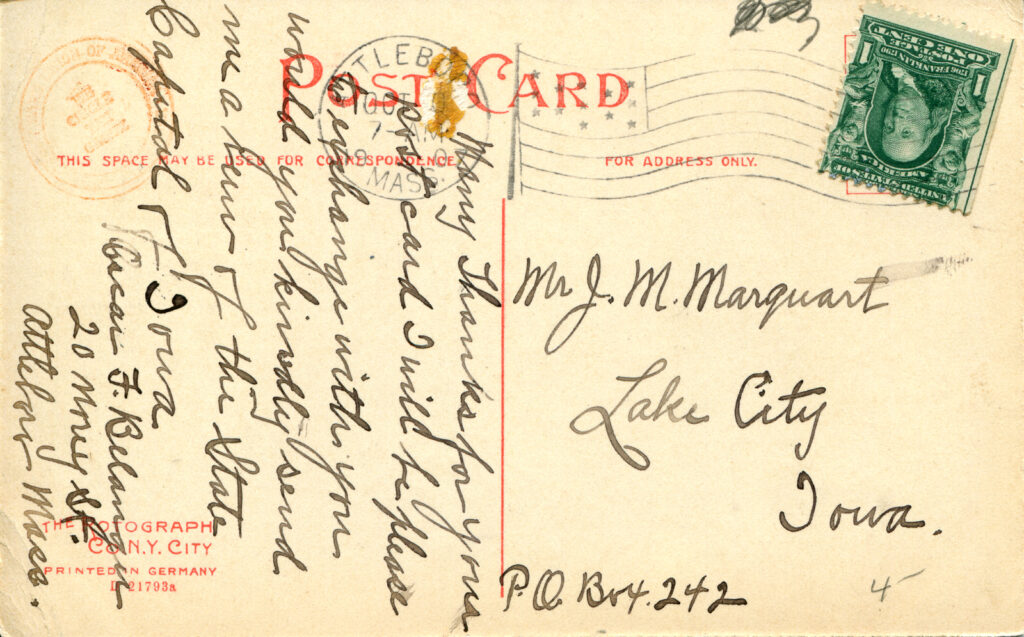 POST CARD
THIS SPACE MAY BE USED FOR CORRESPONDENCE
FOR ADDRESS ONLY.
TTLEBO
OCT
7-AM
MASS.
ONE CENT
POSTAGE
1706 FRANKLIN 1790
1 1
UNITED STATES OF
AMERICA
Many Thanks for your
post card I will be please
to exchange with you
would you kindly send
me a view of the State
Capital of Iowa
Oscar F. Belanger
20 Money St.
Attleboro Mass.
Mr J. M. Marquart
Lake City
Iowa.
P.O. Box 242
4
THE ROTOGRAPH
CO N.Y. CITY
PRINTED IN GERMANY
21793a